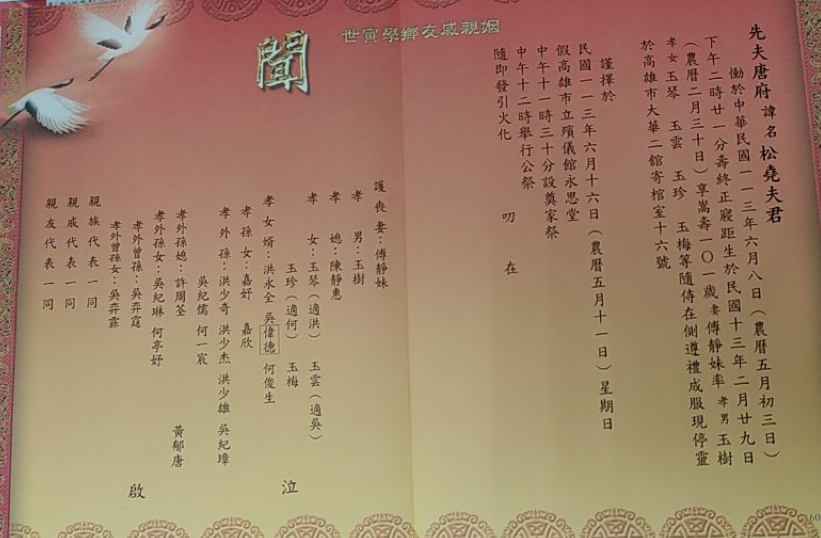 先夫唐府 諱名 松堯夫君
慟於中華民國一一三年六月八日（農曆五月初三日）
下午二時廿一分壽終正寢距生於民國十三年二月廿九日
（農曆二月三十日）享嵩壽一〇一歲 妻傅靜妹率 孝男 玉樹
孝女 玉琴 玉雲 玉珍 玉梅等隨侍在側遵禮成服現停靈
於高雄市大華二館寄棺室十六號
謹擇於
民國一一三年六月十六日（農曆五月十一日）星期日
假高雄市立殯儀館永思堂
中午十一時三十分設奠家祭
中午十二時舉行公祭
隨即發引火化
叨在
姻親戚友鄉學寅世
聞
護喪妻：傅靜妹
孝男：玉樹
孝媳：陳靜惠
孝女：玉琴（適洪） 玉雲（適吳）
玉珍（適何） 玉梅
孝女婿：洪永全 吳偉德 何俊生
孝孫女：嘉妤 嘉欣
孝外孫：洪少奇 洪少杰 洪少雄 吳紀璋
吳紀儒 何一宸
孝外孫媳：許周荃 黃郁唐
孝外孫女：吳紀琳 何亭妤
孝外曾孫：吳弈寇
孝外曾孫女：吳弈霏
親族代表一同
親戚代表一同
親友代表一同
泣
啟
60